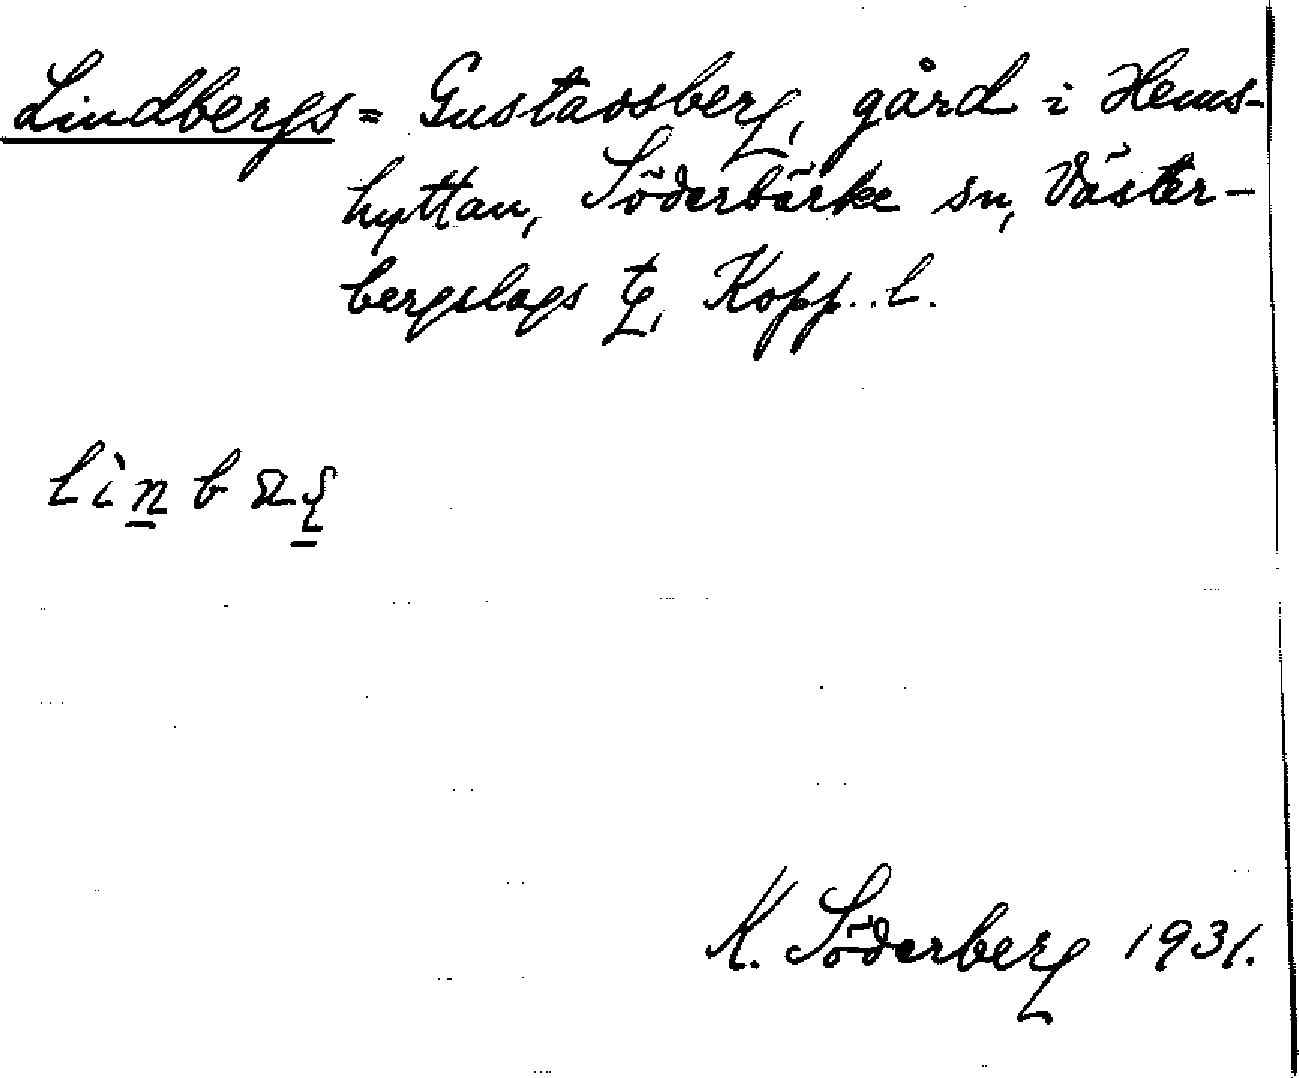 Lindbergs = Gustavsberg, gård i Hems-
hyttan, Söderbärke sn, Väster-
bergslags tg, Kopp. l.
K. Söderberg 1931.